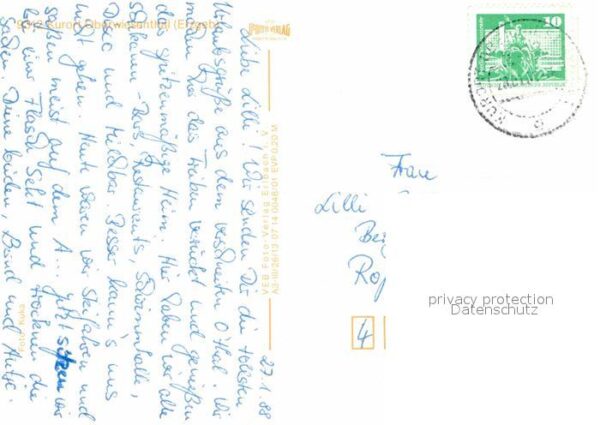 9312 Kurort Oberwiesenthal (Erzgeb.)
27.1.88
Liebe Lilli! Wir senden Dir die tollsten
Urlaubsgrüße aus dem verschneiten O'thal. Wir
machen das Treiben verrückt und genießen
das spitzenmäßige Heim. Hier haben wir alle
Bars, Restaurants, Schwimmhalle,
Disco und Milchbar. Besser kann's uns
nicht gehen. Heute waren wir skifahren und
saßen meist auf dem A... Jetzt sitzen wir
bei einer Flasche Sekt und trocknen die
Sachen. Deine beiden, Bernd und Antje.
Foto: Kuka
VEB Foto-Verlag Erlbach i. V.
A2-III/26/13 07 14 0046/01 EVP 0,20 M
FOTO VERLAG
10
Frau
Lilli
4
privacy protection
Datenschutz